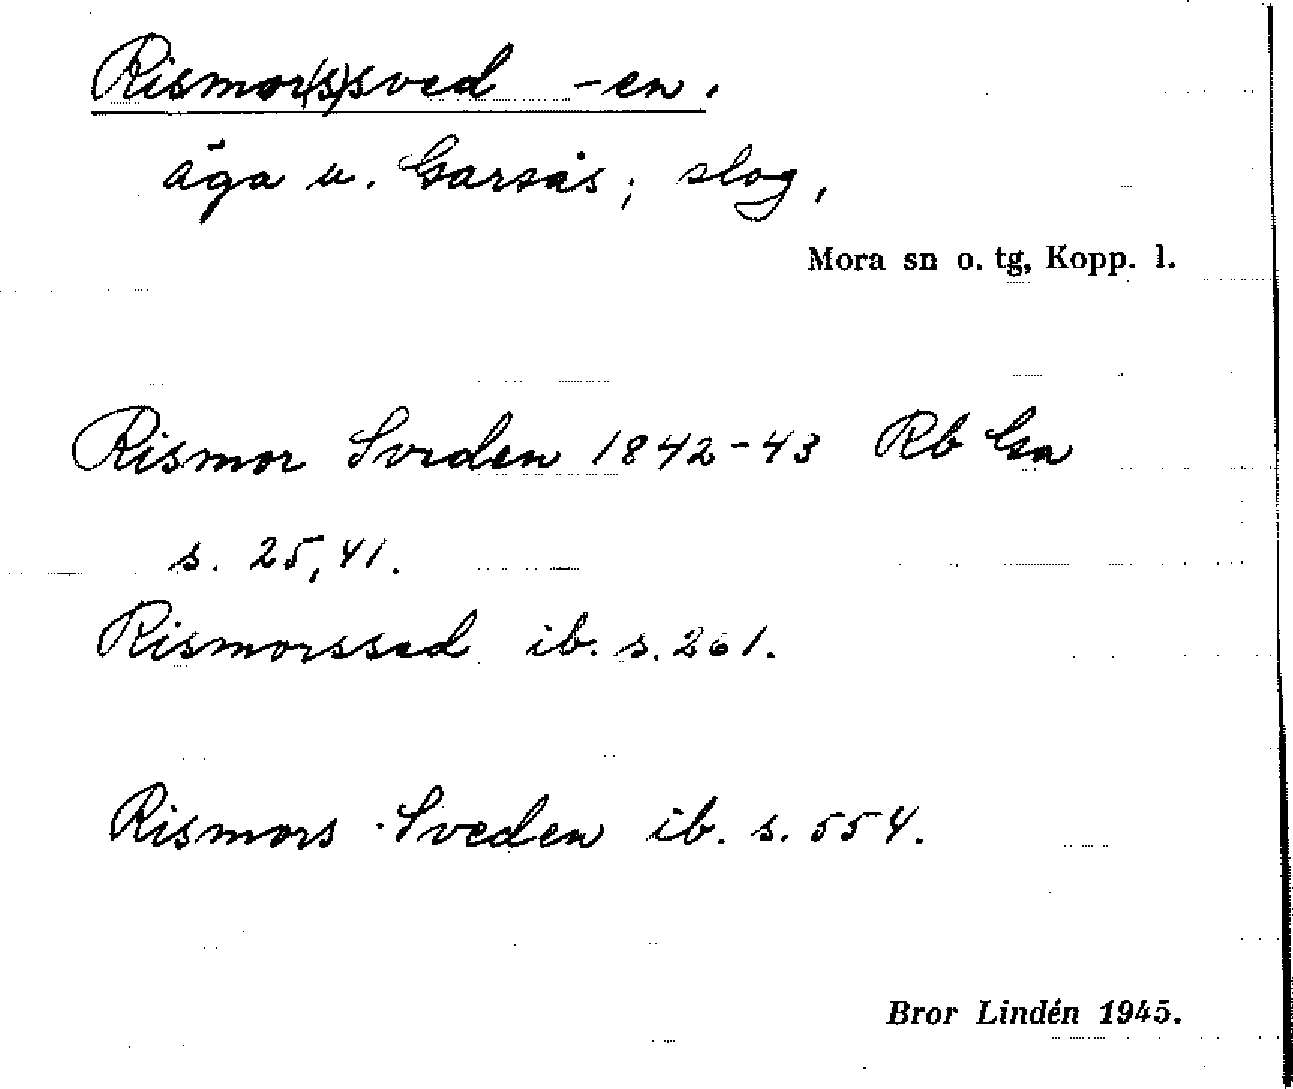 Rismor(s)sved -en.
äga u. Garsås; slog,
Mora sn o. tg, Kopp. l.
Rismor Sveden 1842-43 Rb Ga
s. 25, 41.
Rismorssed ib. s. 261.
Rismors Sveden ib. s. 554.
Bror Lindén 1945.